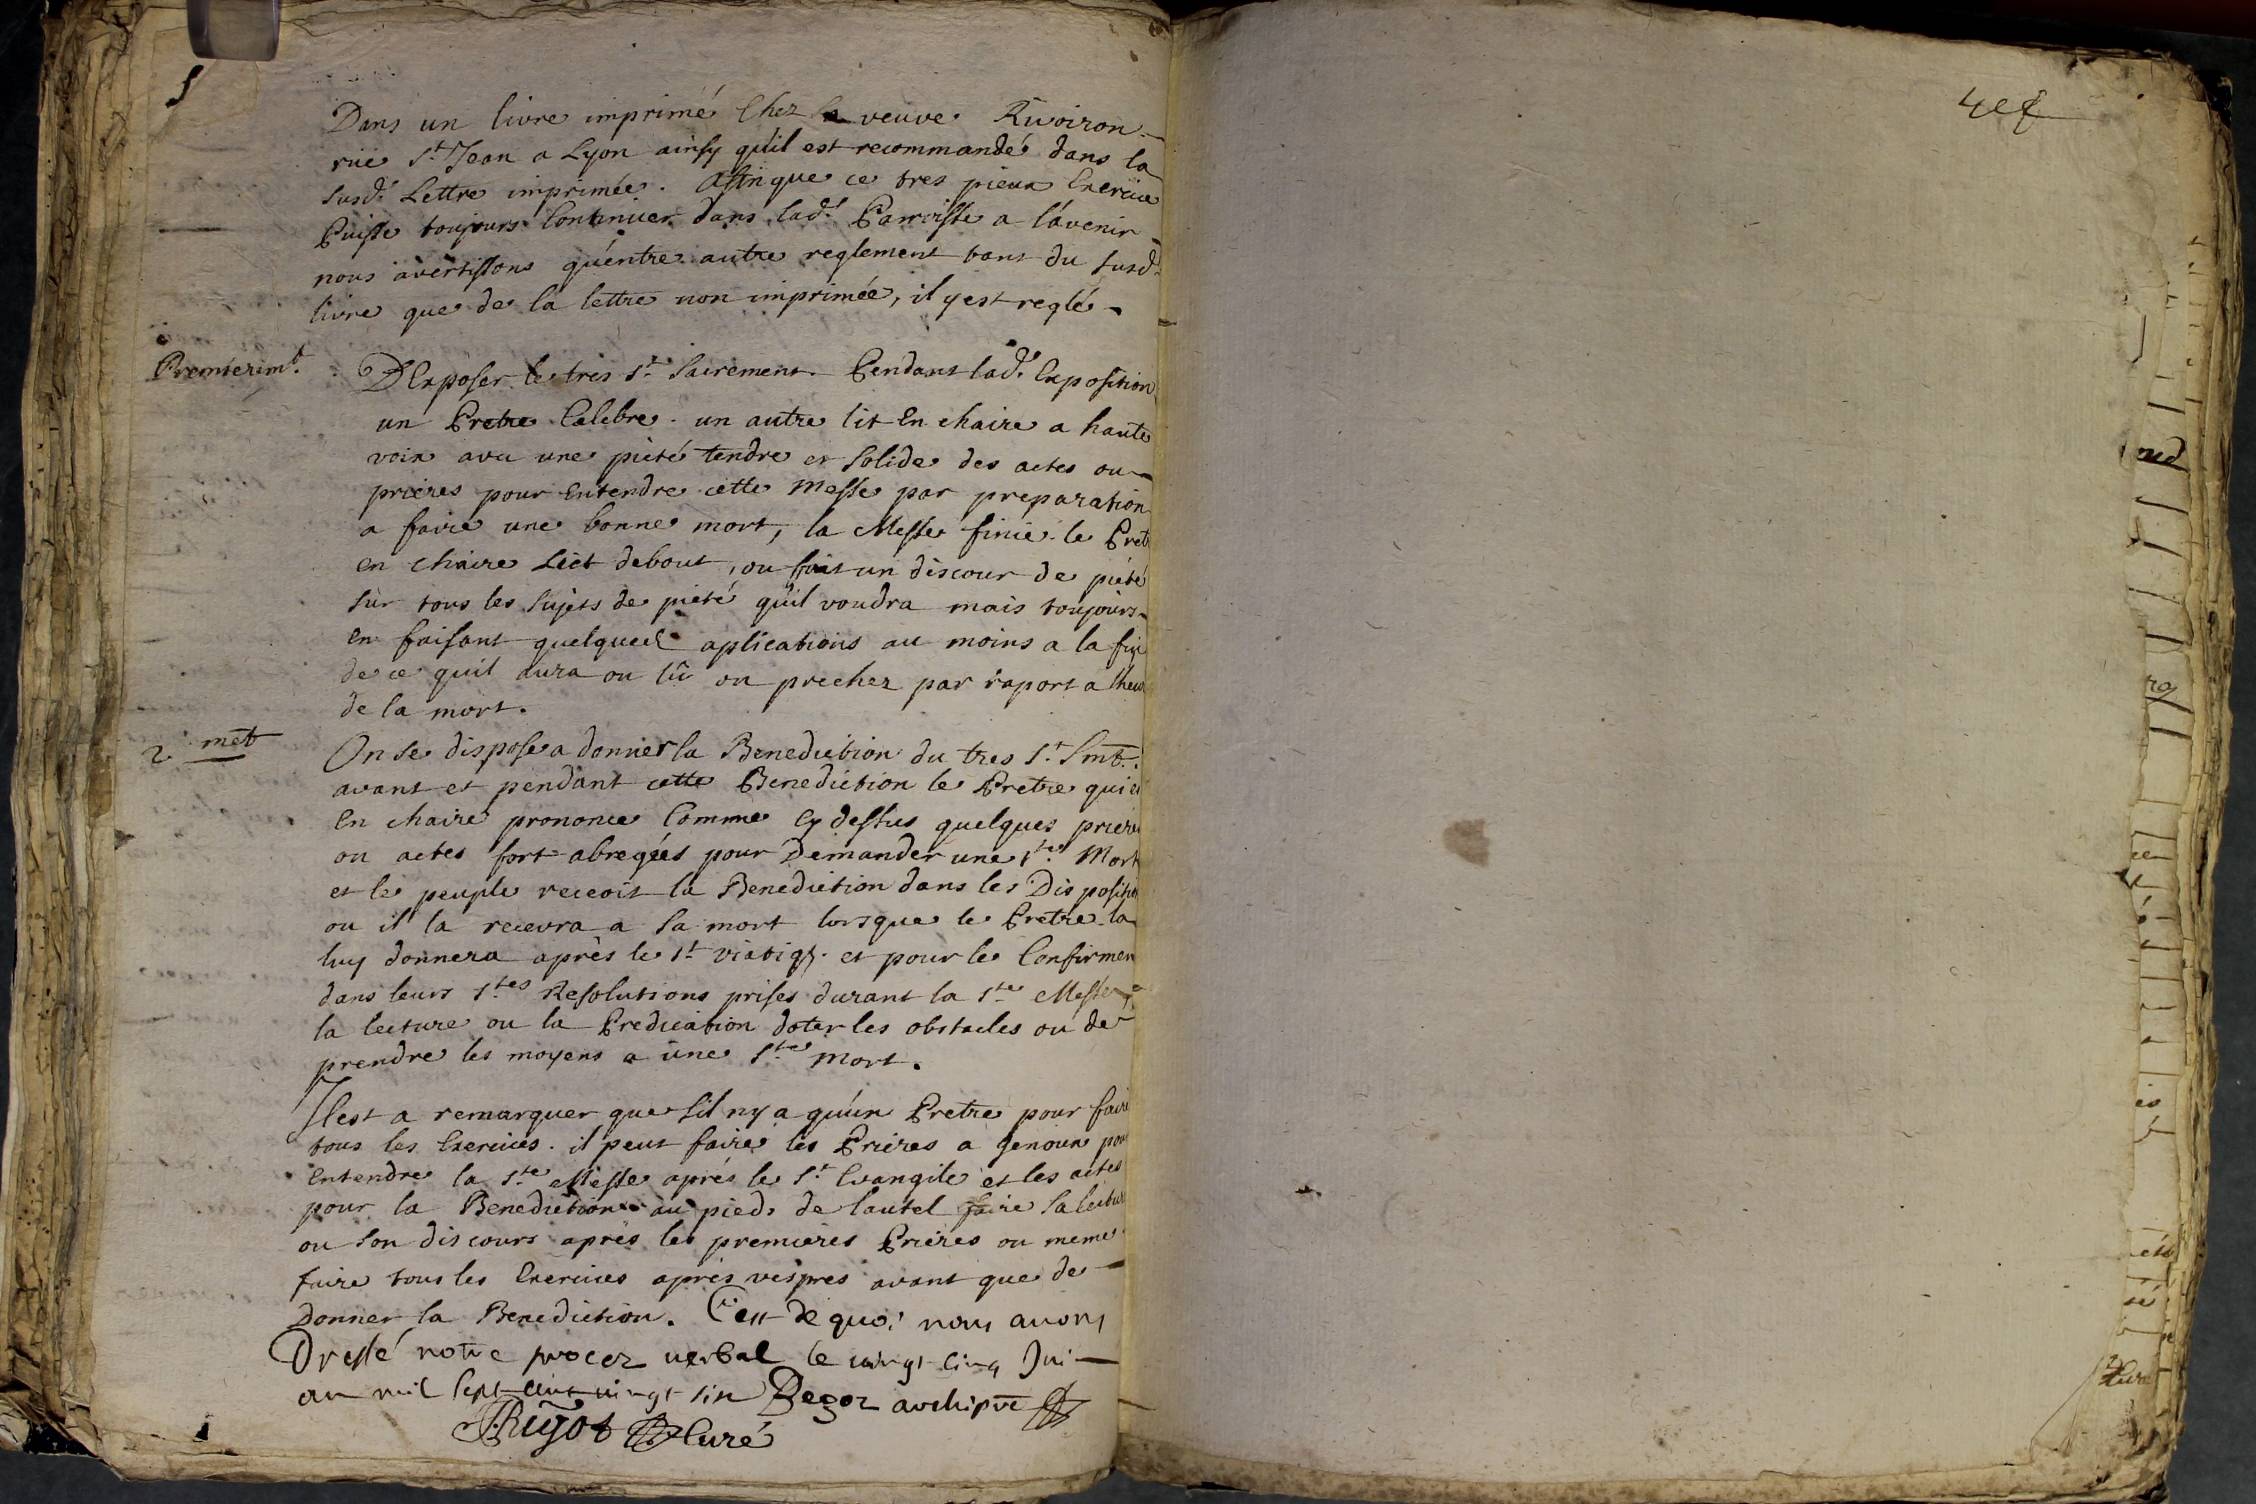 Dans un livre imprimé Chez la veuve Rivoiron
rüe St Jean a Lyon ainsy quil est recommandé dans la
susd. Lettre imprimée. Affin que ce tres pieux Exercice
Puisse toujours Continuer dans lad. Parroisse a lávenir
nous avertissons qu'entre autre reglement tant du susd.
livre que de la lettre non imprimée, il y est reglé
Premierimt. DExposer le tres St. Sacrement. Pendant lad. Exposition
un Pretre Celebre. un autre lit En chaire a haute
voix avec une piété tendre et Solide des actes ou
prieres pour Entendre cette Messe par preparation
a faire une bonne mort, la Messe finie le Pret
en chaire Lict debout, ou fait un discour de piété
sur tous les Sujets de piété quil voudra mais toujours
en faisant quelques aplications au moins a la fin
de ce quil aura ou lû ou prechez par raport a lheu
de la mort.
2 met On se dispose a donner la Benediction du tres St. Smt.
avant et pendant cette Benediction le Pretre qui e
En chaire prononce Comme Cy dessus quelques priere
ou actes fort abregées pour Demander une Ste. Mort
et le peuple recoit la Benediction dans les Disposition
ou il la recevra a Sa mort lorsque le Pretre la
luy donnera après le St viatiq. et pour le Confirmer
dans leurs Stes Resolutions prises durant la Ste Messe,
la lecture ou la Predication doter les obstacles ou de
prendre les moyens a une Ste Mort.
Il est a remarquer que Sil ny a qu'un Pretre pour faire
tous les Exercices. il peut faire les Prieres a genoux pour
Entendre la Ste Messe aprés le St Evangile et les actes
pour la Benediction au pieds de lautel faire Sa lectur
ou Son discours aprés les premieres Prieres ou meme
faire tous les Exercices aprés vespres avant que de
Donner la Benediction. C'est de quoi nous avons
Dressé notre procez verbal le vingt cinq Jui
an mil sept cent vingt six Begoz archiptre
Rigot Curé